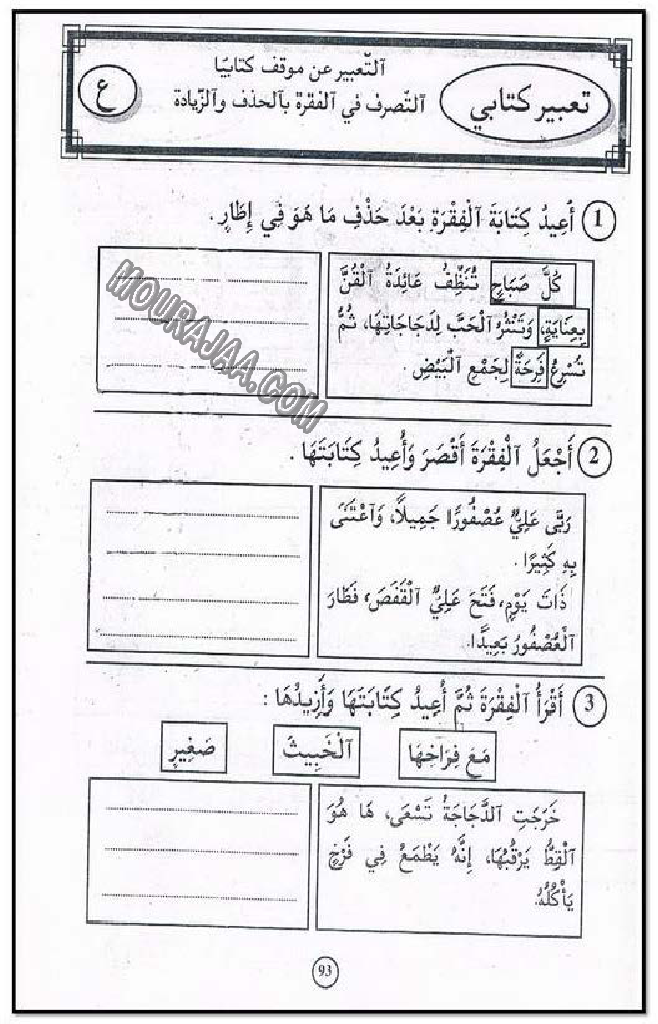 تعبير كتابي
اَلتّعبير عن موقف كتابيًا
اَلتّصرف في اَلفقرة بالحذف واَلزّيادة
ع
1 أُعِيدُ كِتَابَةَ اَلْفِقْرَةِ بَعْدَ حَذْفِ مَا هُوَ فِي إِطَارٍ .
كُلَّ صَبَاحٍ تُنَظِّفُ عَائِدَةُ اَلْقُنَّ
بِعِنَايَةٍ، وَتَنْثُرُ اَلْحَبَّ لِدَجَاجَاتِهَا، ثُمَّ
تُسْرِعُ فَرِحَةً لِجَمْعِ اَلْبَيْضِ .
MOURAJAA.COM
2 أَجْعَلُ اَلْفِقْرَةَ أَقْصَرَ وَأُعِيدُ كِتَابَتَهَا .
رَبَّى عَلِيٌّ عُصْفُورًا جَمِيلاً، وَاَعْتَنَى
بِهِ كَثِيرًا .
ذَاتَ يَوْمٍ، فَتَحَ عَلِيٌّ اَلْقَفَصَ، فَطَارَ
اَلْعُصْفُورُ بَعِيدًا.
3 أَقْرَأُ اَلْفِقْرَةَ ثُمَّ أُعِيدُ كِتَابَتَهَا وَأَزِيدُهَا :
مَعَ فِرَاخِهَا
اَلْخَبِيثُ
صَغِيرٍ
خَرَجَتِ اَلدَّجَاجَةُ تَسْعَى، هَا هُوَ
اَلْقِطُّ يَرْقُبُهَا، إِنَّهُ يَطْمَعُ فِي فَرْخٍ
يَأْكُلُهُ.
93